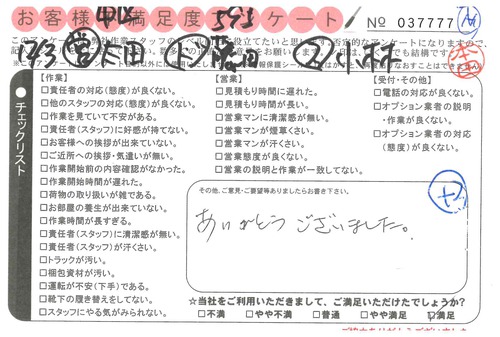 お客様 満足度 アンケート!
№ 037777
【作業】
□責任者の対応(態度)が良くない。
□他のスタッフの対応(態度)が良くない。
□作業を見ていて不安がある。
□責任者(スタッフ)に好感が持てない。
□お客様への挨拶が出来ていない。
□ご近所への挨拶・気遣いが無い。
□作業開始前の内容確認がなかった。
□作業開始時間が遅れた。
□荷物の取り扱いが雑である。
□お部屋の養生が出来ていない。
□作業時間が長すぎる。
□責任者(スタッフ)に清潔感が無い。
□責任者(スタッフ)が汗くさい。
□トラックが汚い。
□梱包資材が汚い。
□運転が不安(下手)である。
□靴下の履き替えをしてない。
□スタッフにやる気がみられない。
【営業】
□見積もり時間に遅れた。
□見積もり時間が長い。
□営業マンに清潔感が無い。
□営業マンが煙草くさい。
□営業マンが汗くさい。
□営業態度が良くない。
□営業の説明と作業が一致してない。
【受付・その他】
□電話の対応が良くない。
□オプション業者の説明
・作業が良くない。
□オプション業者の対応
(態度)が良くない。
チェックリスト
その他、ご意見・ご要望等ありましたらお書き下さい。
ありがとうございました。
☆当社をご利用いただきまして、ご満足いただけたでしょうか?
□不満 □やや不満 □普通 □やや満足 ☑満足